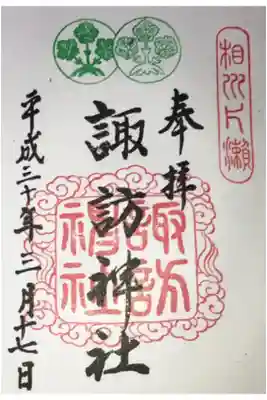 相州片瀬
奉拝
諏訪神社
諏訪神社
平成三十年三月十七日